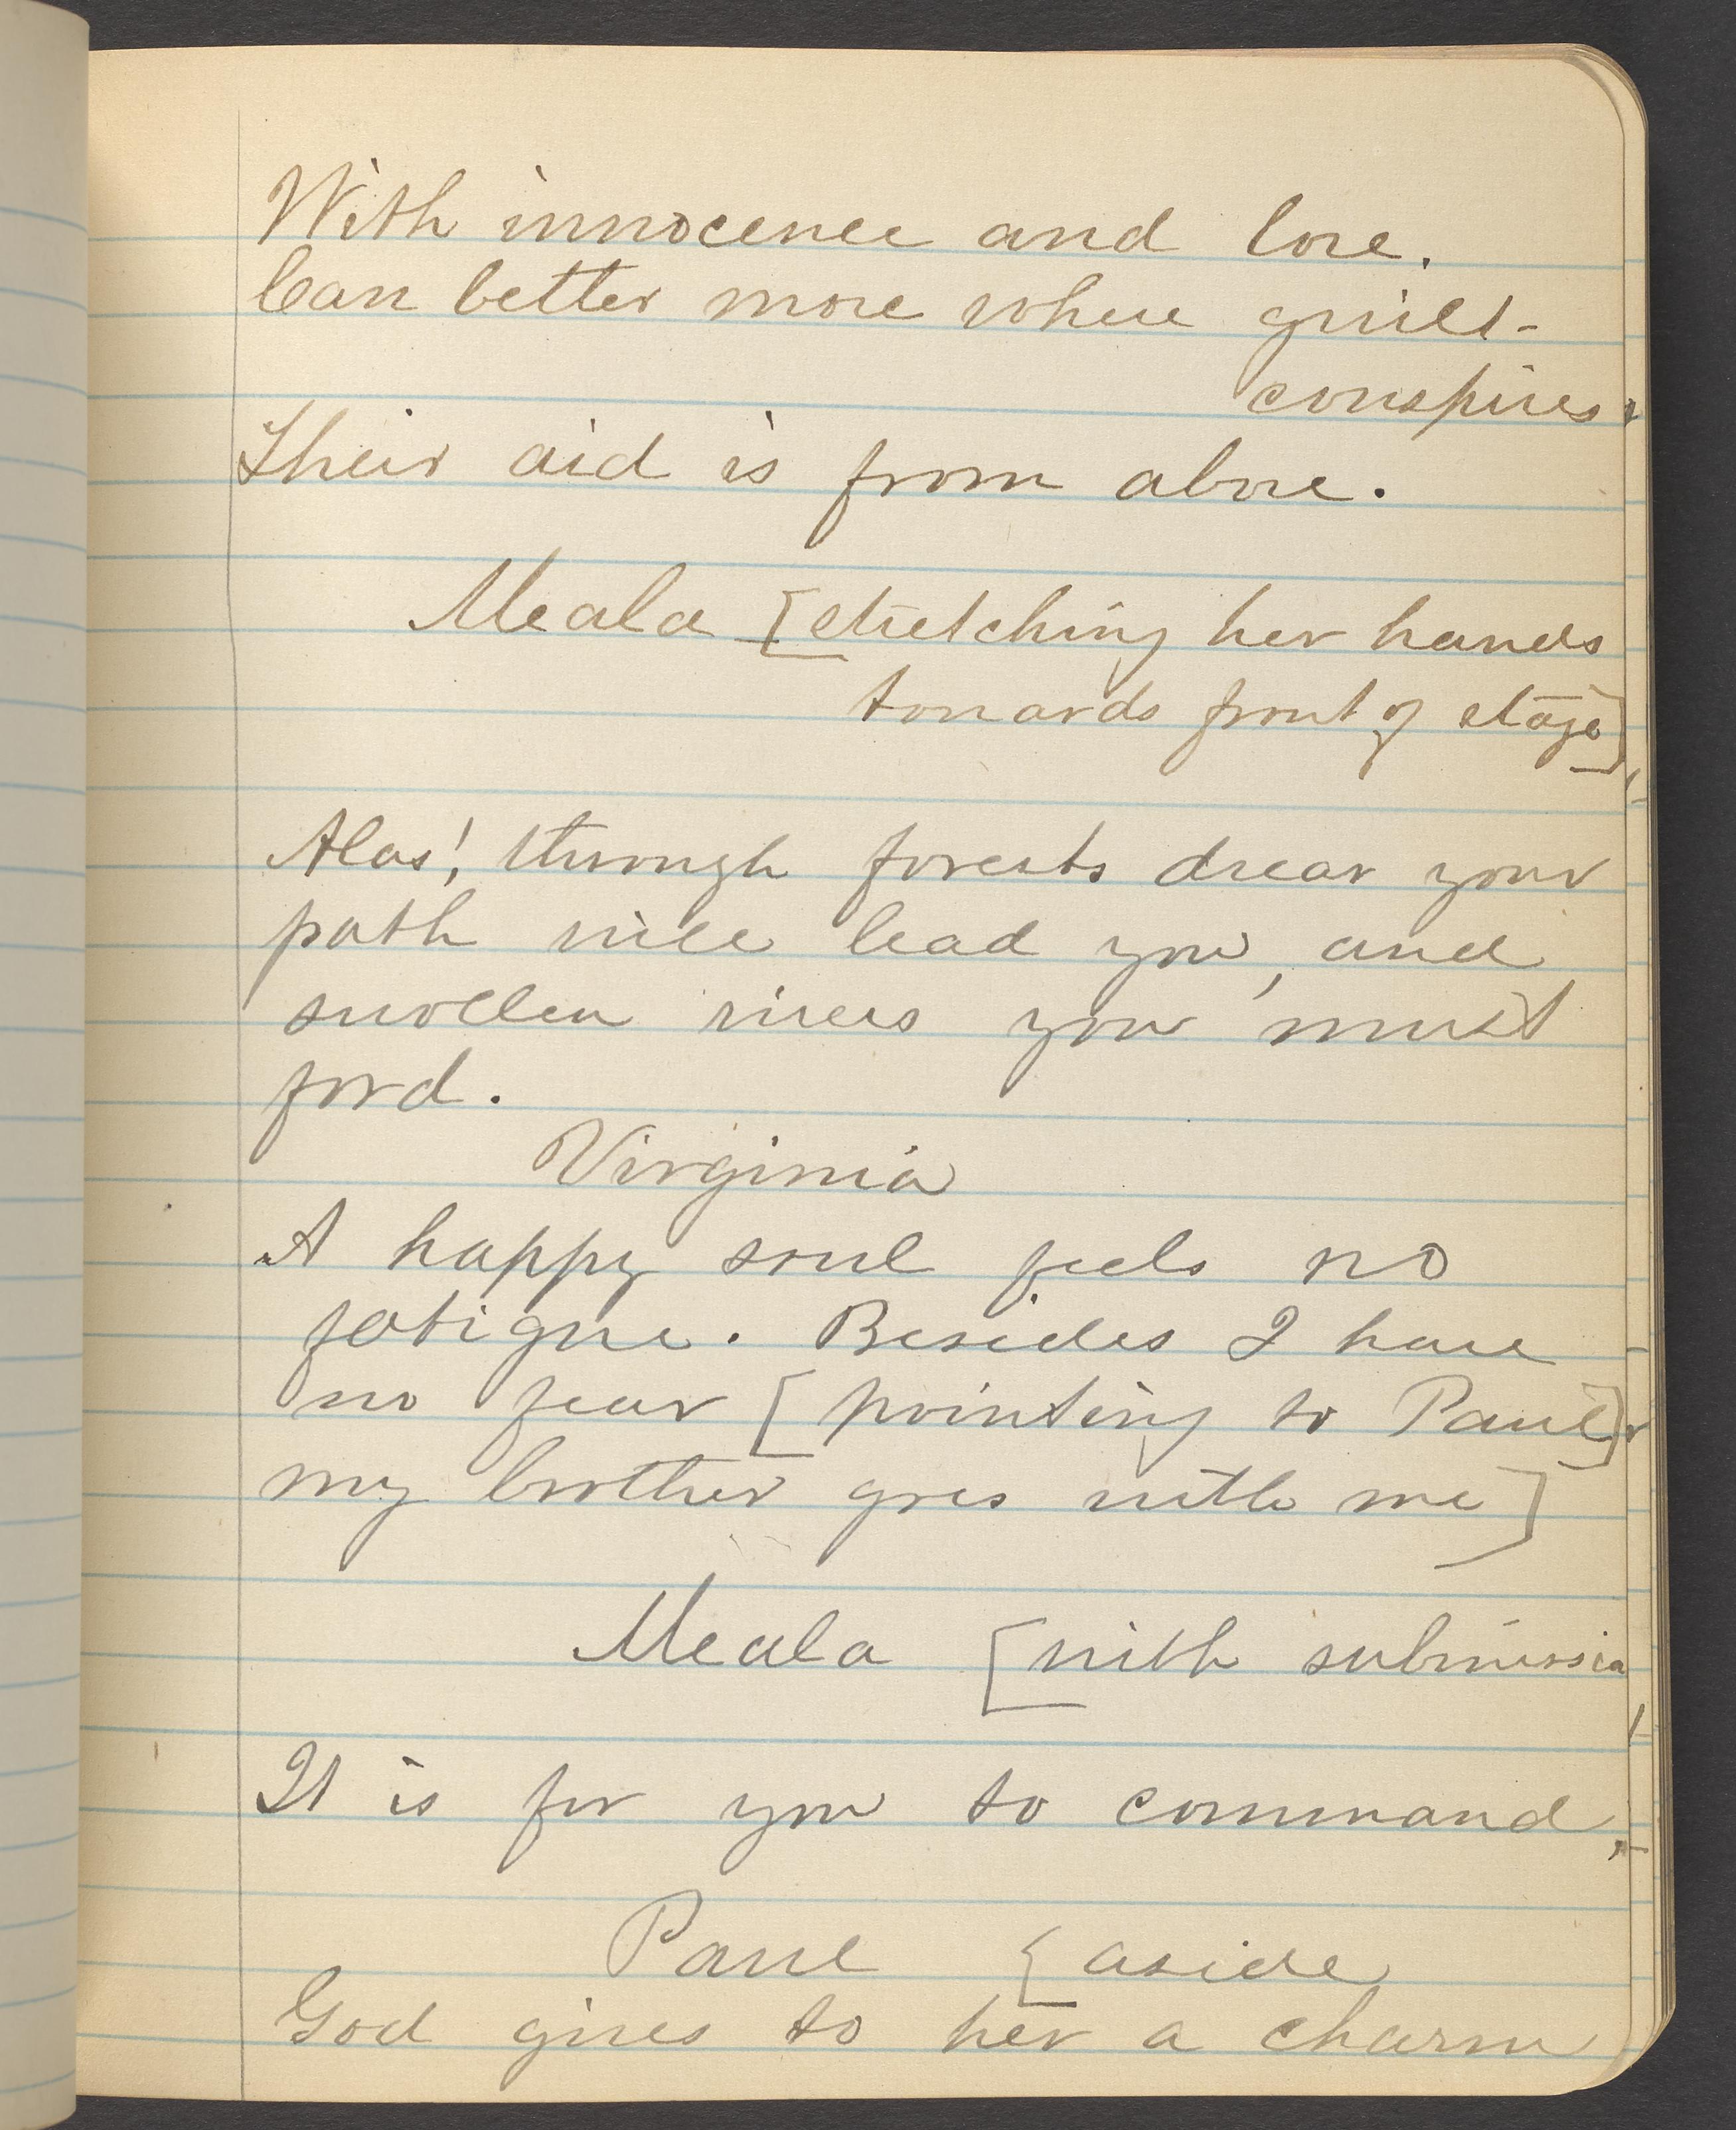 With innocence and love.
Can better move where guilt
conspires
Their aid is from above.
Meala [stretching her hands
towards front of stage]
Alas! through forests drear your
path will lead you, and
swollen rivers you must
ford.
Virginia
A happy soul feels no
fatigue. Besides I have
no fear [pointing to Paul]
my brother goes with me]
Meala [with submission
It is for you to command,
Paul [aside
God gives to her a charm